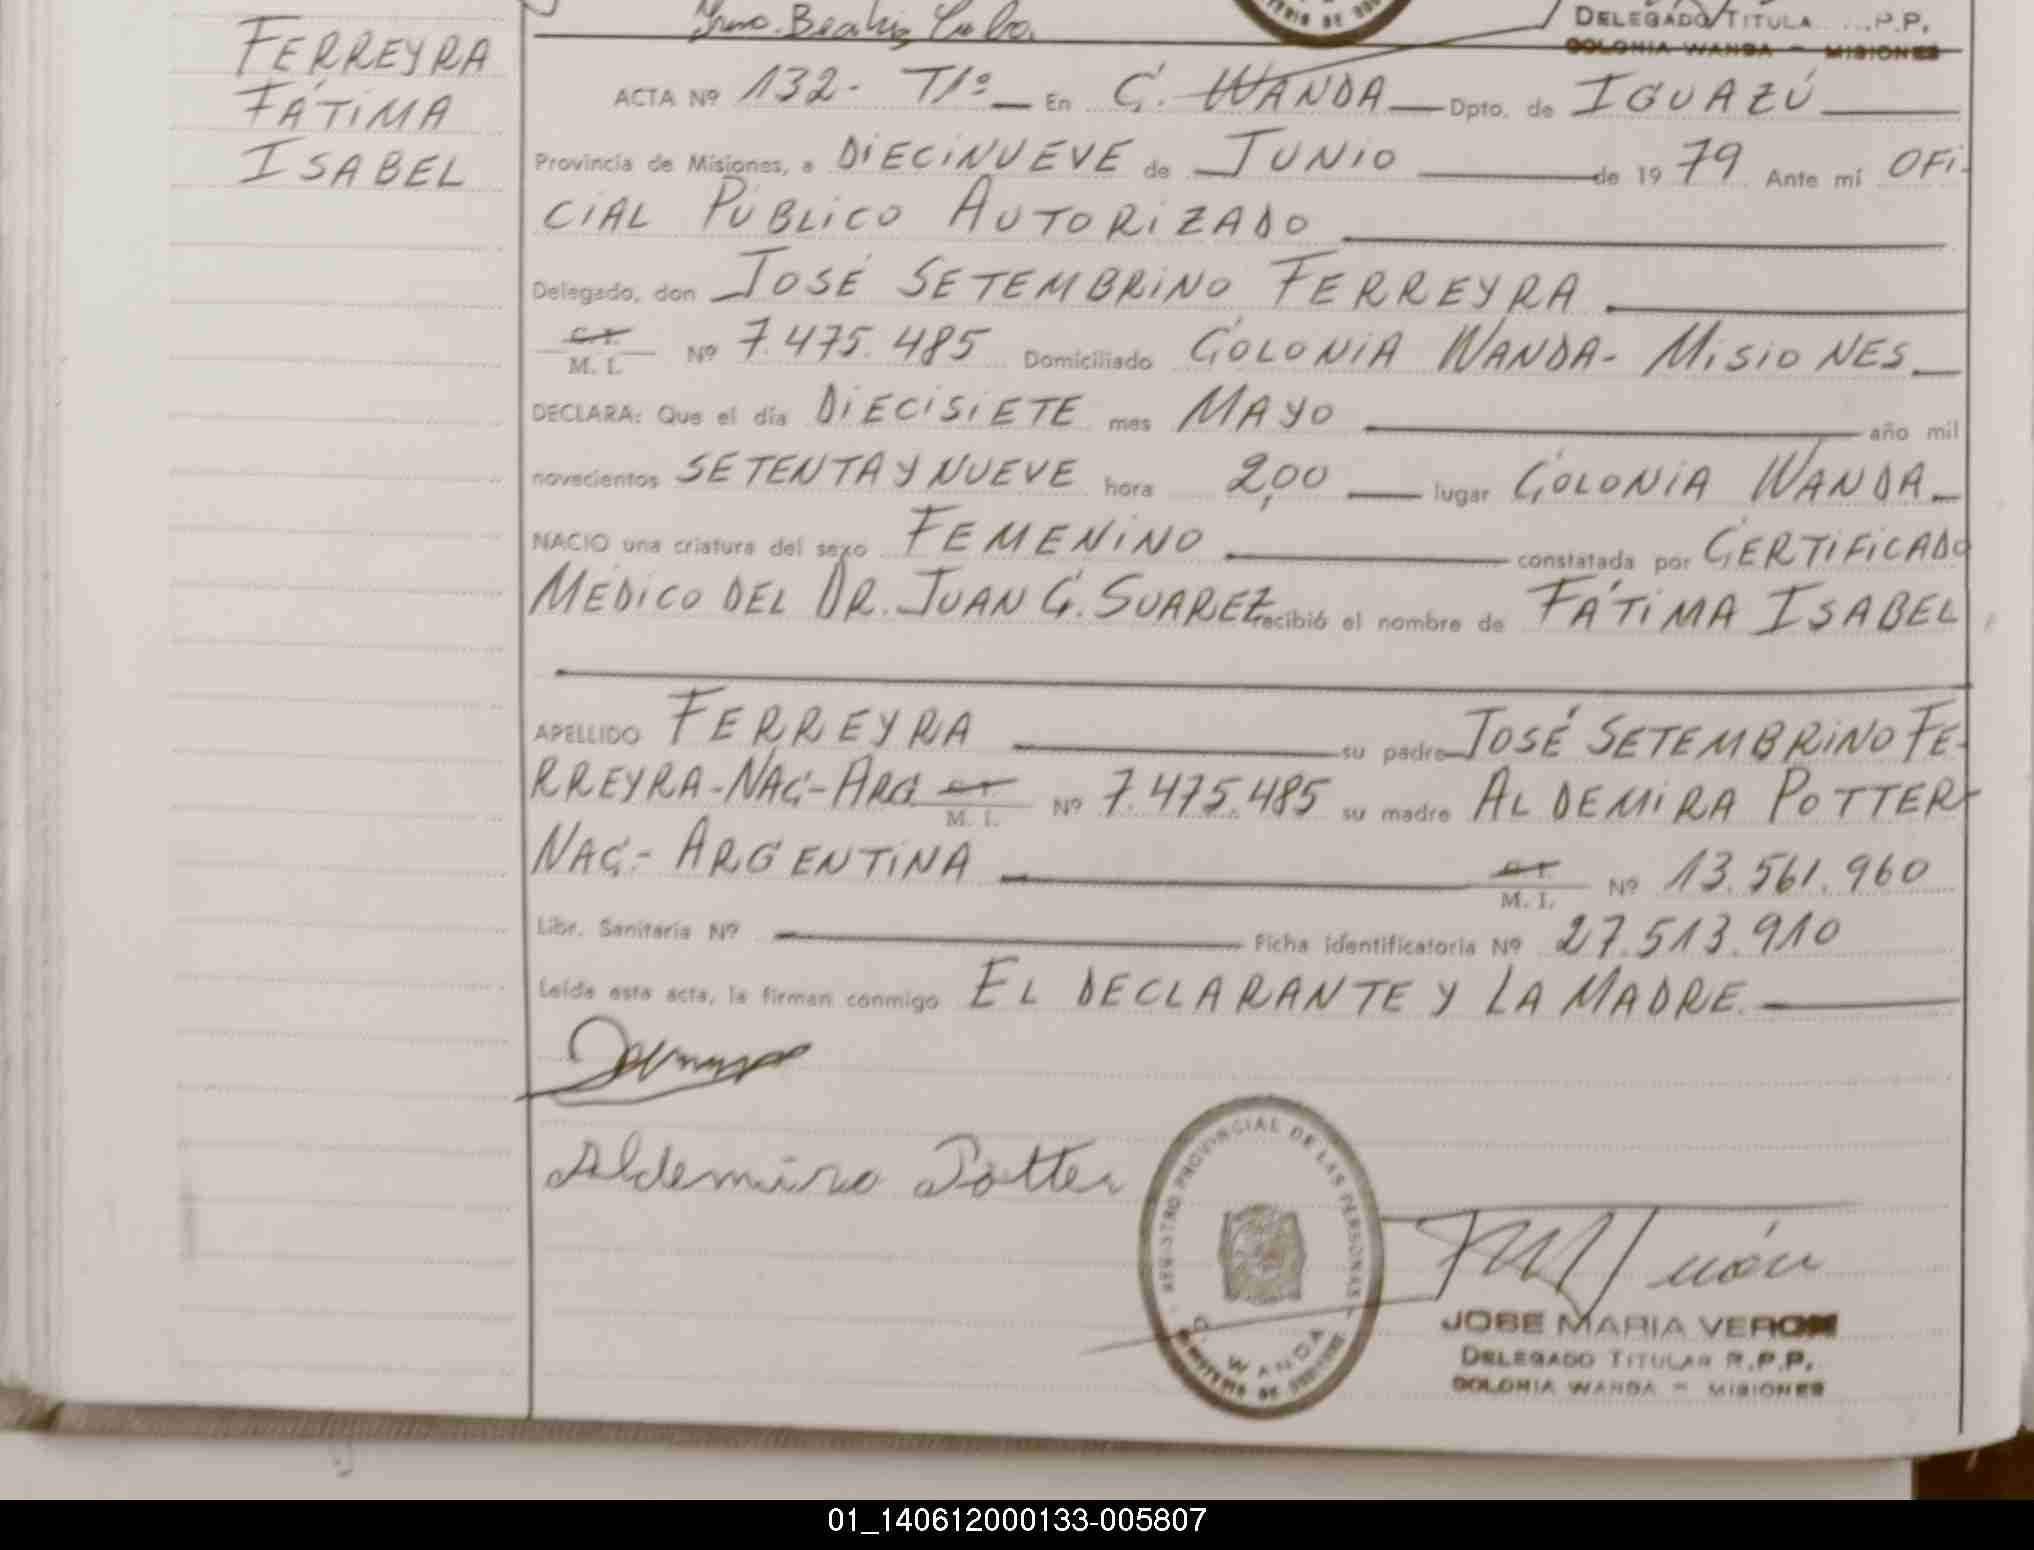 DELEGADO TITULA P.P.
COLONIA WANDA - MISIONES
FERREYRA
FÁTIMA
ISABEL
ACTA Nº 132- T1º En C. WANDA Dpto. de IGUAZÚ
Provincia de Misiones, a DIECINUEVE de JUNIO de 1979 Ante mí OFI-
CIAL PÚBLICO AUTORIZADO
Delegado, don JOSÉ SETEMBRINO FERREYRA
C. I.
M. I. Nº 7.475.485 Domiciliado COLONIA WANDA- MISIONES
DECLARA: Que el día DIECISIETE mes MAYO año mil
novecientos SETENTA Y NUEVE hora 2,00 lugar COLONIA WANDA
NACIO una criatura del sexo FEMENINO constatada por CERTIFICADO
MÉDICO DEL DR. JUAN C. SUAREZ recibió el nombre de FÁTIMA ISABEL
APELLIDO FERREYRA su padre JOSÉ SETEMBRINO FE-
RREYRA-NAC-ARG C. I. M. I. Nº 7.475.485 su madre ALDEMIRA POTTER-
NAC.- ARGENTINA C. I. M. I. Nº 13.561.960
Libr. Sanitaria Nº Ficha identificatoria Nº 27.513.910
Leída esta acta, la firman conmigo EL DECLARANTE Y LA MADRE.
Aldemira Potter
REGISTRO PROVINCIAL DE LAS PERSONAS
C. WANDA
MINISTERIO DE GOBIERNO
JOSE MARIA VERON
DELEGADO TITULAR R.P.P.
COLONIA WANDA - MISIONES
01_140612000133-005807